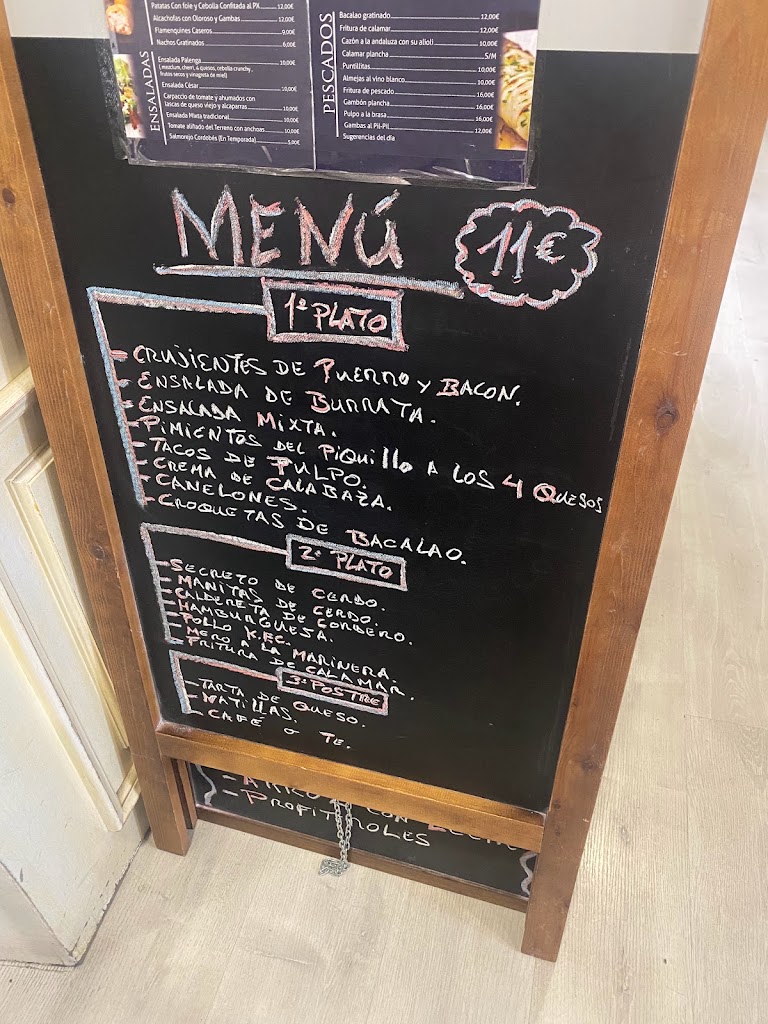 Patatas Con foie y Cebolla Confitada al PX 12,00€
Alcachofas con Oloroso y Gambas 12,00€
Flamenquines Caseros 9,00€
Nachos Gratinados 6,00€
ENSALADAS
Ensalada Palenga 10,00€
( mezclum, cherri, 4 quesos, cebolla crunchy,
frutos secos y vinagreta de miel)
Ensalada César 10,00€
Carpaccio de tomate y ahumados con
lascas de queso viejo y alcaparras 10,00€
Ensalada Mixta tradicional 10,00€
Tomate aliñado del Terreno con anchoas 10,00€
Salmorejo Cordobés (En Temporada) 5,00€
PESCADOS
Bacalao gratinado 12,00€
Fritura de calamar 12,00€
Cazón a la andaluza con su alioli 10,00€
Calamar plancha S/M
Puntillitas 10,00€
Almejas al vino blanco 10,00€
Fritura de pescado 16,00€
Gambón plancha 16,00€
Pulpo a la brasa 16,00€
Gambas al Pil-Pil 12,00€
Sugerencias del día
MENÚ 11€
1º PLATO
- CRUJIENTES DE PUERRO Y BACON.
- ENSALADA DE BURRATA.
- ENSALADA MIXTA.
- PIMIENTOS DEL PIQUILLO A LOS 4 QUESOS
- TACOS DE PULPO.
- CREMA DE CALABAZA.
- CANELONES.
- CROQUETAS DE BACALAO.
2º PLATO
- SECRETO DE CERDO.
- MANITAS DE CERDO.
- CALDERETA DE CORDERO.
- HAMBURGUESA.
- POLLO K.F.C.
- MERO A LA MARINERA.
- FRITURA DE CALAMAR.
3º POSTRE
- TARTA DE QUESO.
- NATILLAS.
- CAFÉ O TE.
CON
- PROFITEROLES